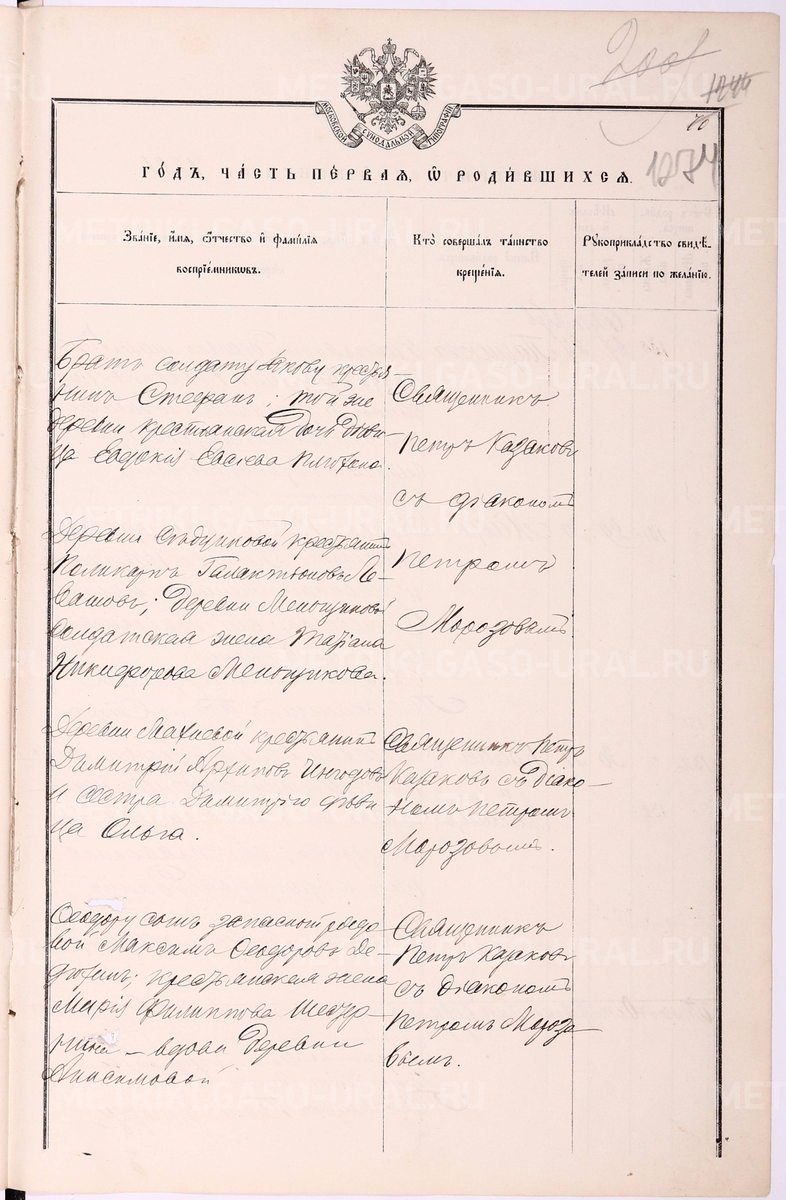 2001
1274
МОСКОВСКОЙ СѴНОДАЛЬНОЙ ТИПОГРАФІИ
ГО́ДЪ, ЧА́СТЬ ПЕ́РВАЯ, Ѡ҆ РОДИ́ВШИХСЯ.
Зва́нїе, и҆́мя, ѻ҆́тчество и҆ фами́лїя
воспрїе́мниковъ.
Кто̀ соверша́лъ та́инство
креще́нїя.
Рꙋкоприкла́дство свидѣ́-
телей за́писи по жела́нїю.
Братъ солдату Якову крестья
нинъ Стефанъ; той же
деревни крестьянская дочь дѣви
ца Евдокія Евсіева
Священникъ
Петръ Казаковъ
съ діакономъ
Петромъ
Морозовымъ
Деревни крестьянинъ
Поликарпъ Галактіоновъ Ле-
вашовъ; деревни Меньщиковой
солдатская жена Татіана
Никифорова Меньщикова.
Деревни Махневой крестьянинъ
Димитрій Архиповъ
и сестра Димитрія дѣви
ца Ольга.
Священникъ Петръ
Казаковъ съ діако-
номъ Петромъ
Морозовымъ.
Ѳеодору сынъ запасной рядо
вой Максимъ Ѳеодоровъ Де-
крестьянская жена
Марія Филиппова
вдова деревни
Анисимовой
Священникъ
Петръ Казаковъ
съ діакономъ
Петромъ Морозо
вымъ.